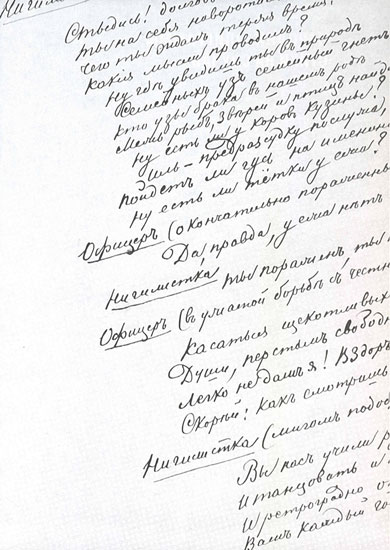 Нигилистка
Стыдись! долговъ
ты на себя наворотилъ
Чего ты ждалъ теряя время,
Какія мысли проводилъ?
Ну гдѣ увидишь ты въ природѣ
Семейныхъ узъ семейный гнетъ
Кто узы брака въ нашемъ родѣ
Межъ рыбъ, звѣрей и птицъ найд
Ну есть ли у коровъ кузины?
Иль – предразсудку послужа,
Пойдетъ ли гусь на именины
Ну есть ли тётка у ежа?
Офицеръ (окончательно пораженны
Да, правда, у ежа нѣтъ
Нигилистка
ты пораженъ, ты
Офицеръ (въ борьбѣ съ
Касаться щекотливых
Души, перстомъ свобод
Легко не дамъ я! Вздоръ
Скорѣй! Какъ смотришь
Нигилистка (мигомъ подо
Вы насъ учили
И танцовать и
И ретроградно
Вамъ каждый го